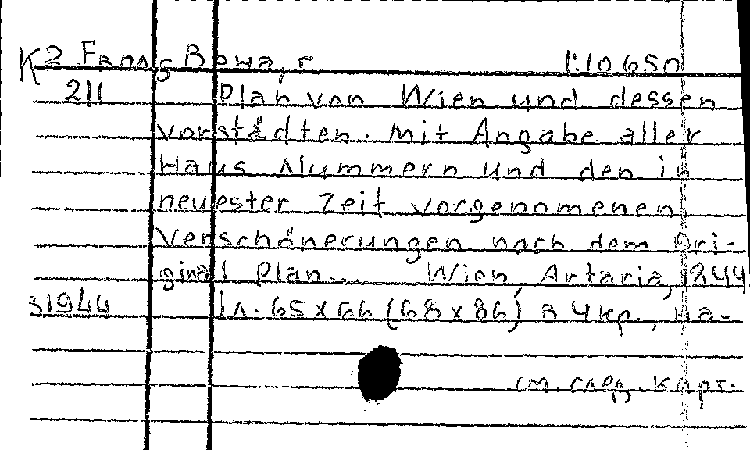 K2 Franz Bowa, r 1:10650
211 Plan von Wien und dessen
Vorstädten. Mit Angabe aller
Haus Nummern und den in
neuester Zeit vorgenommenen
Verschönerungen nach dem Ori-
ginal Plan. Wien, Artaria, 1844
31944 1л. 65 x 66 (68 x 86) в 4 кр., на-
см. след. карт.